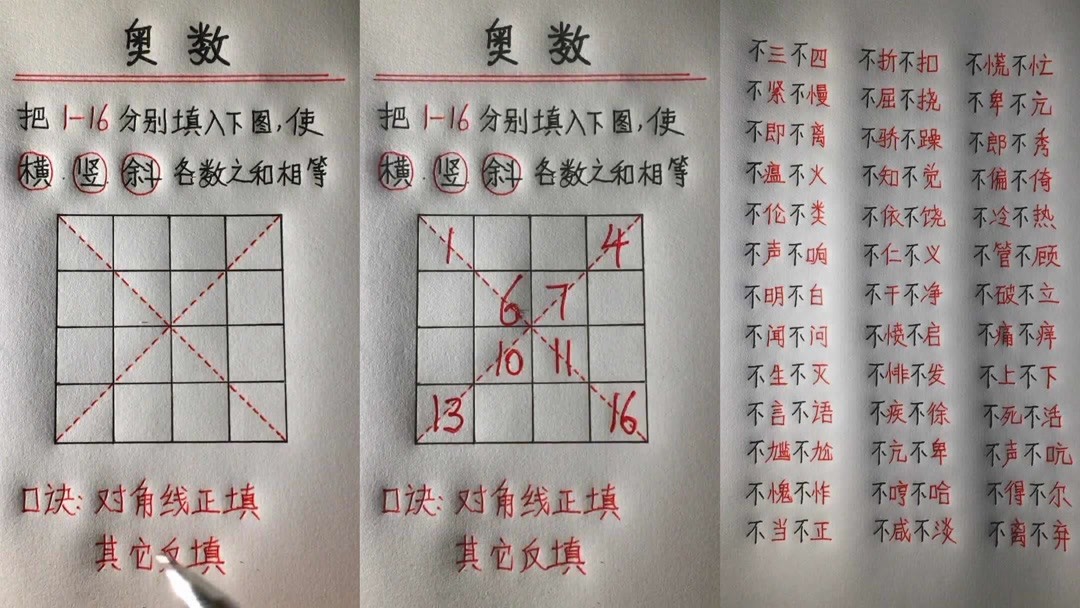 奥数
把1-16分别填入下图,使
横.竖.斜各数之和相等
口诀:对角线正填
其它反填
奥数
把1-16分别填入下图,使
横.竖.斜各数之和相等
1 4
6 7
10 11
13 16
口诀:对角线正填
其它反填
不三不四 不折不扣 不慌不忙
不紧不慢 不屈不挠 不卑不亢
不即不离 不骄不躁 不郎不秀
不瘟不火 不知不觉 不偏不倚
不伦不类 不依不饶 不冷不热
不声不响 不仁不义 不管不顾
不明不白 不干不净 不破不立
不闻不问 不愤不启 不痛不痒
不生不灭 不悱不发 不上不下
不言不语 不疾不徐 不死不活
不尴不尬 不亢不卑 不声不吭
不愧不怍 不哼不哈 不得不尔
不当不正 不咸不淡 不离不弃